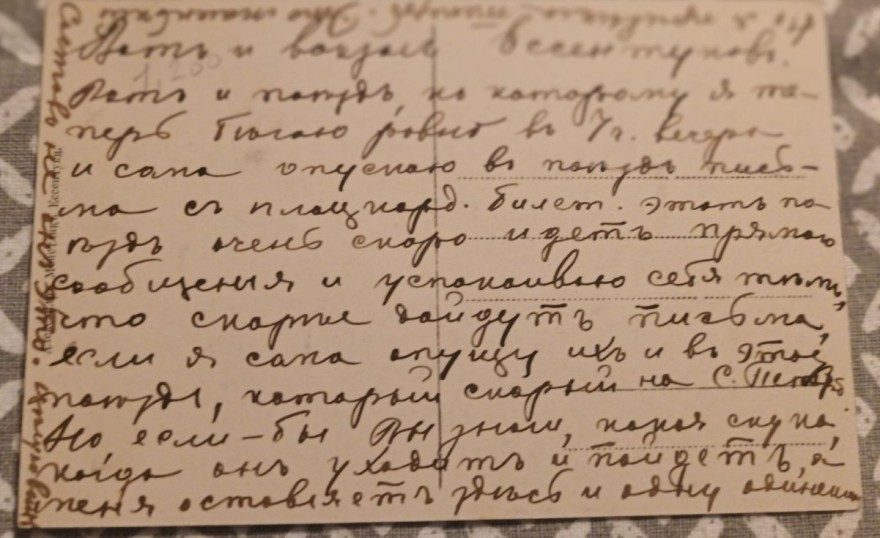 Вотъ и вокзалъ Ессентуковъ.
Вотъ и поѣздъ, къ которому я те-
перь бѣгаю ровно въ 7 ч. вечера
и сама опускаю въ поѣздъ пись-
ма съ плацкард. билет. Этотъ по
ѣздъ очень скоро идетъ прямого
сообщенія и успокаиваю себя тѣмъ,
что скорѣе дойдутъ письма,
если я сама опущу ихъ и въ этой
поѣздъ, который скорый на С. Петерб
Но если-бы Вы знали, какая скука,
когда онъ уходитъ и пойдетъ, а
меня оставляетъ здѣсь и одну одинешен